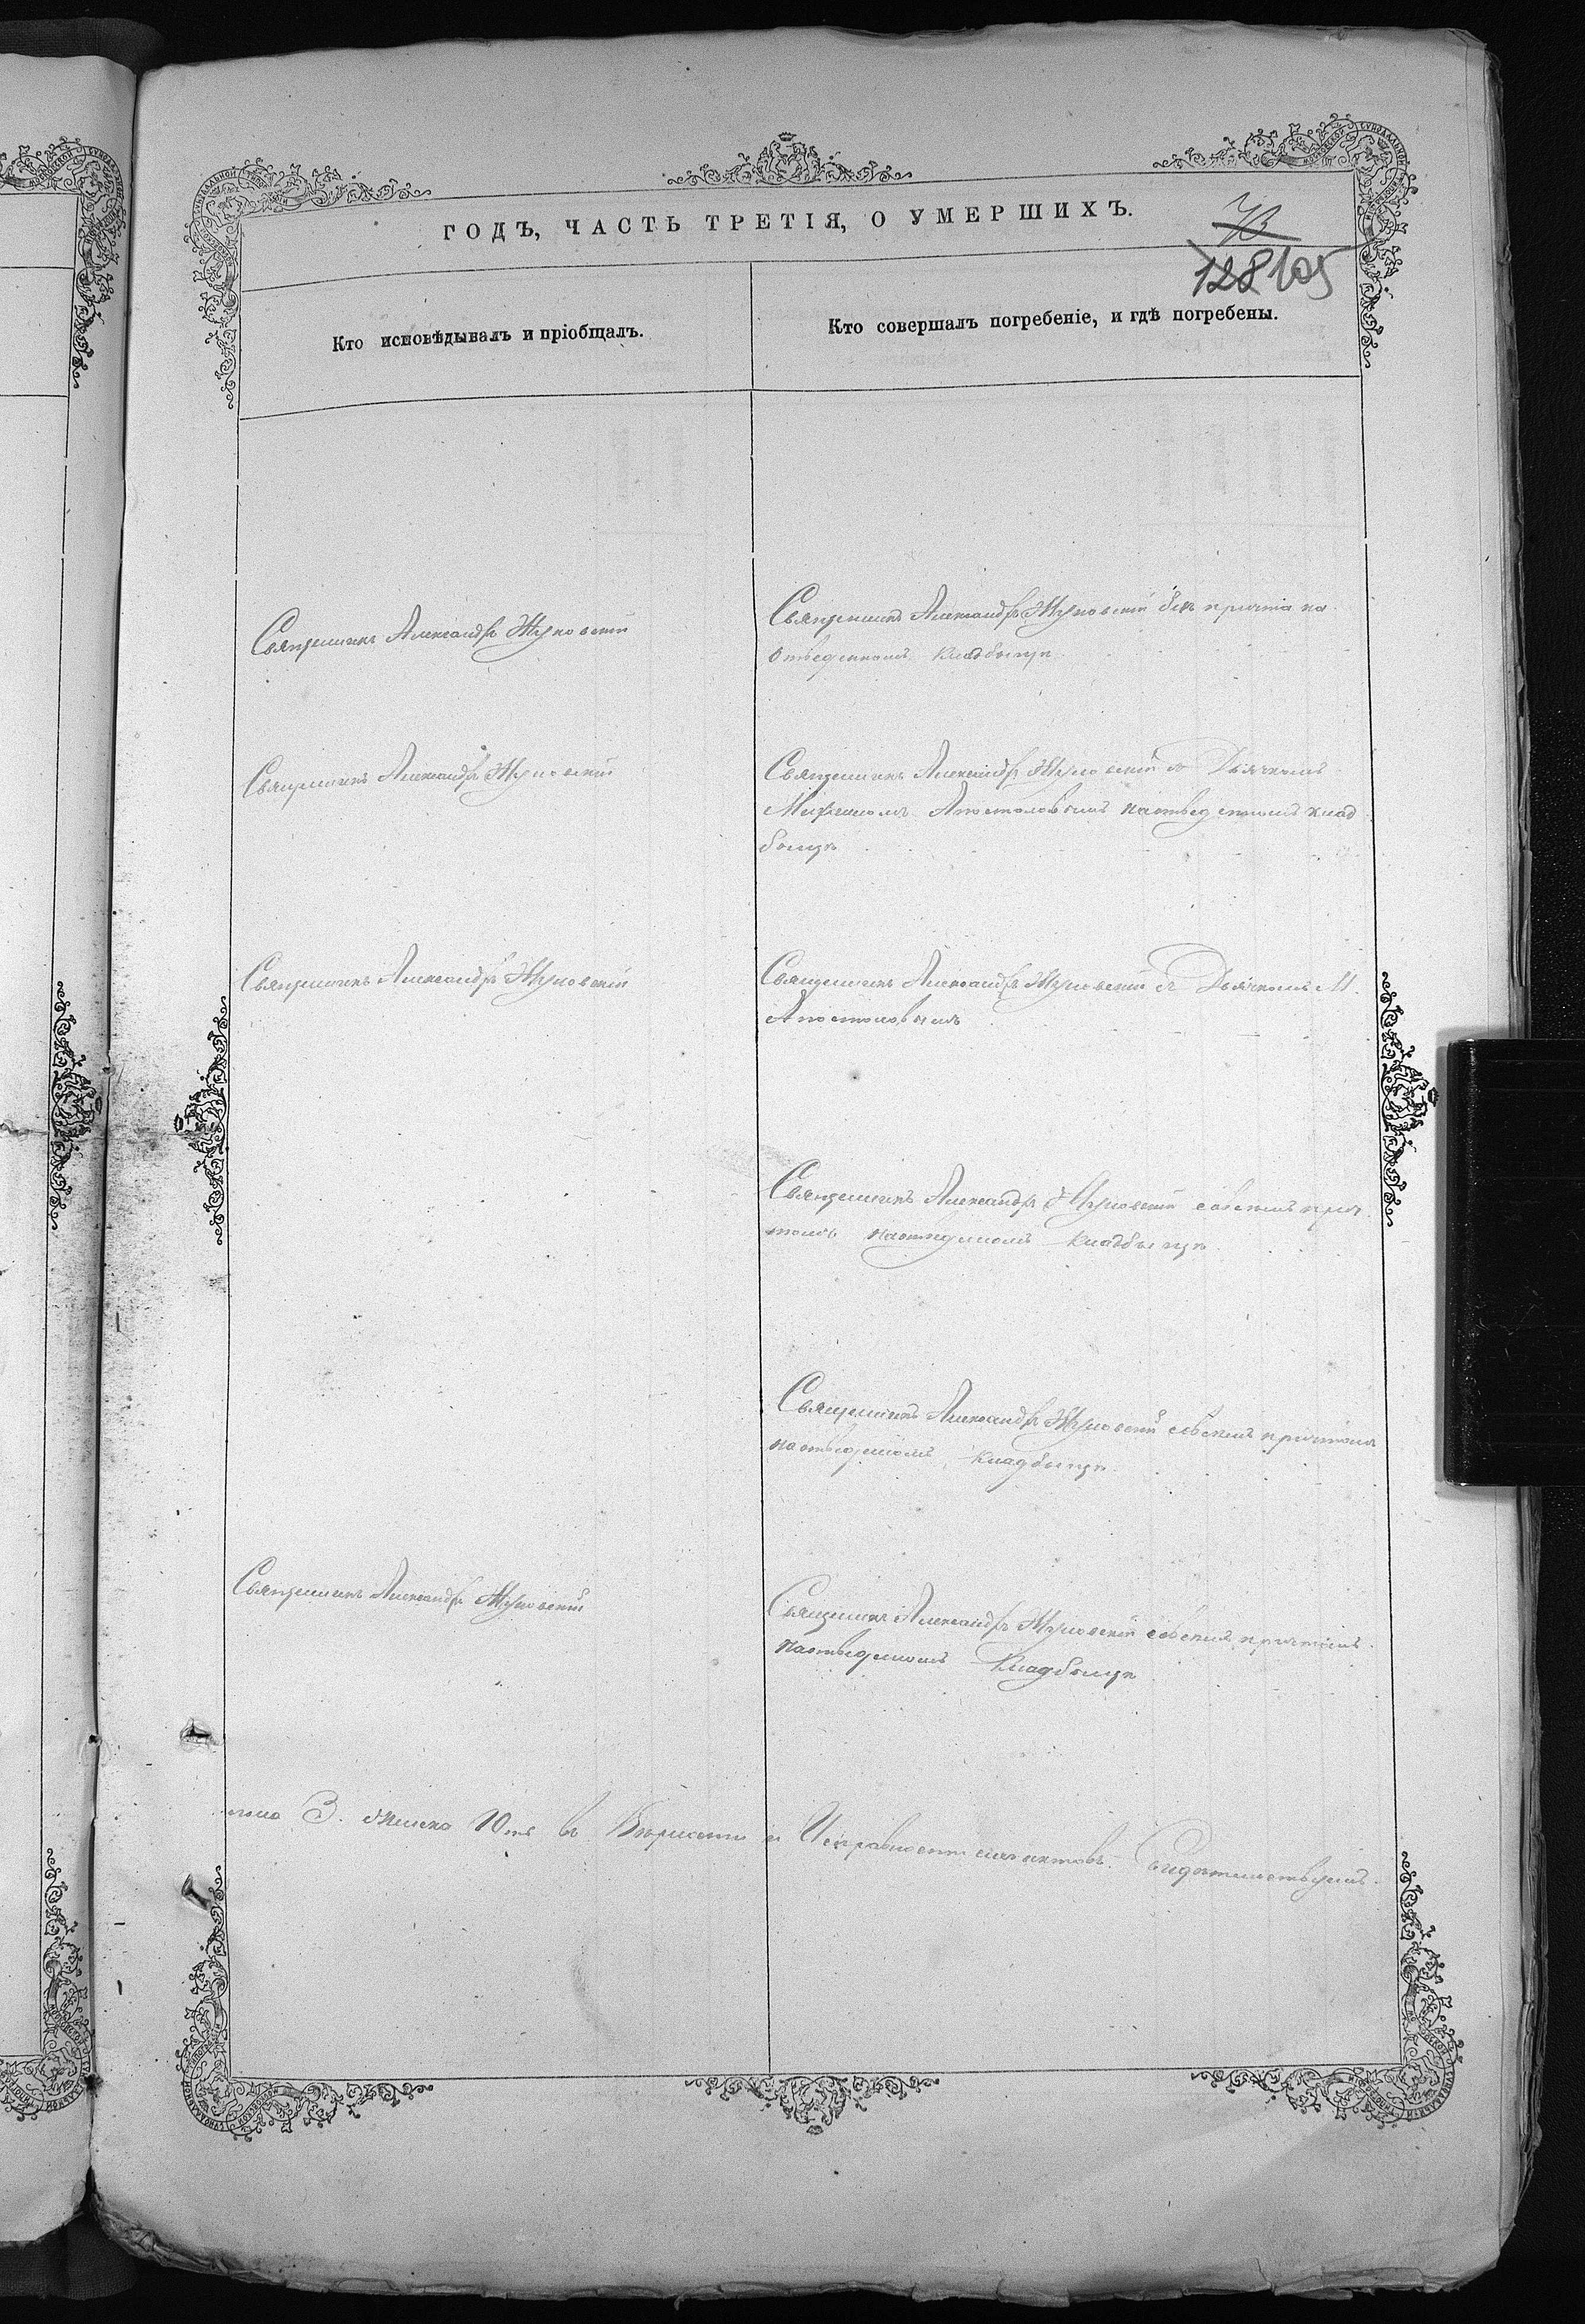 ГОДЪ, ЧАСТЬ ТРЕТІЯ, О УМЕРШИХЪ.
128 105
Кто исповѣдывалъ и пріобщалъ.
Кто совершалъ погребеніе, и гдѣ погребены.
Священникъ Александръ Жуковскій
Священникъ Александръ Жуковскій безъ причта на
отведенномъ кладбищѣ
Священникъ Александръ Жуковскій
Священникъ Александръ Жуковскій съ Дьячкомъ
Апостоловымъ на отведенномъ клад
бищѣ
Священникъ Александръ Жуковскій
Священникъ Александръ Жуковскій съ Дьячкомъ М.
Апостоловымъ
Священникъ Александръ Жуковскій со всемъ прич
томъ на отведенномъ кладбищѣ
Священникъ Александръ Жуковскій со всемъ причтомъ
на отведенномъ кладбищѣ
Священникъ Александръ Жуковскій
Священникъ Александръ Жуковскій со всемъ причтомъ
на отведенномъ кладбищѣ
3. женска 10ть въ Вѣрности и Исправности актовъ Свидѣтельствуемъ.